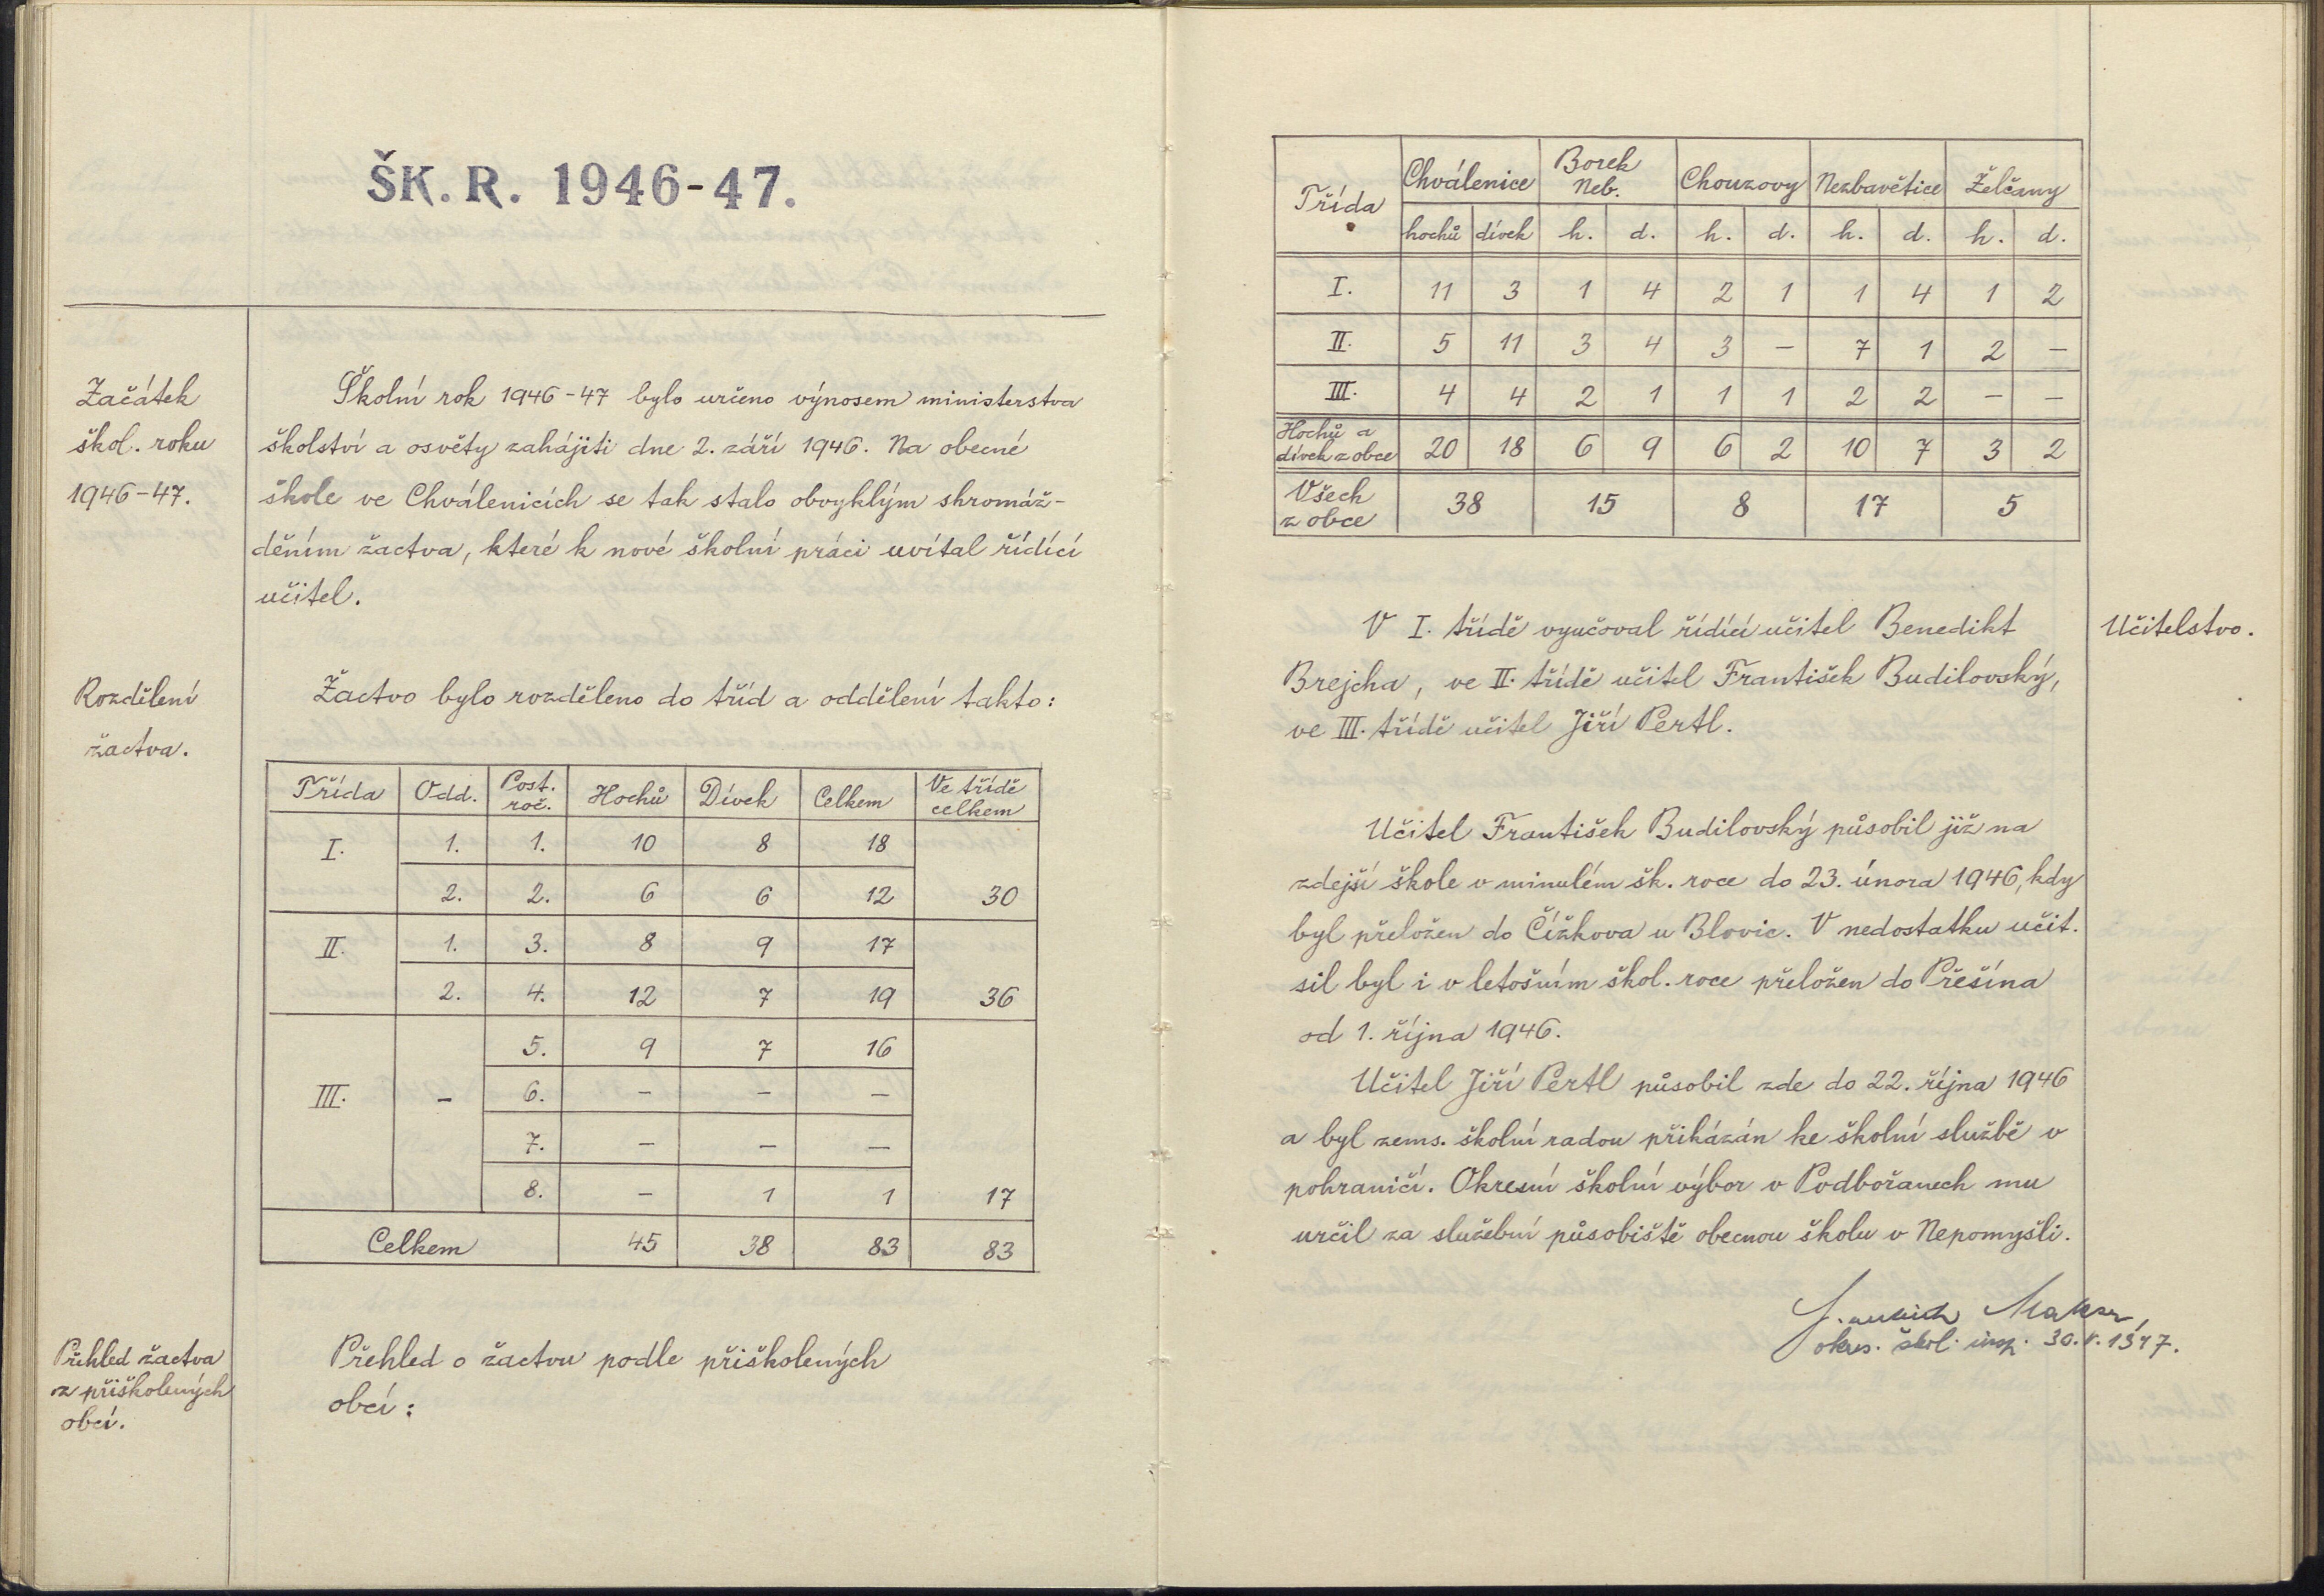 ŠK. R. 1946-47.
Začátek
škol. roku
1946-47.
Školní rok 1946-47 bylo určeno výnosem ministerstva
školství a osvěty zahájiti dne 2. září 1946. Na obecné
škole ve Chválenicích se tak stalo obvyklým shromáž-
děním žactva, které k nové školní práci uvítal řídící
učitel.
Rozdělení
žactva.
Žactvo bylo rozděleno do tříd a oddělení takto:
Třída Odd. Post. roč. Hochů Dívek Celkem Ve třídě celkem
I. 1. 1. 10 8 18
2. 2. 6 6 12 30
II. 1. 3. 8 9 17
2. 4. 12 7 19 36
5. 9 7 16
III. - 6. - - -
7. - - -
8. - 1 1 17
Celkem 45 38 83 83
Přehled žactva
z přiškolených
obcí.
Přehled o žactvu podle přiškolených
obcí:
Třída Chválenice Borek Neb. Chouzovy Nezbavětice Želčany
hochů dívek h. d. h. d. h. d. h. d.
I. 11 3 1 4 2 1 1 4 1 2
II. 5 11 3 4 3 - 7 1 2 -
III. 4 4 2 1 1 1 2 2 - -
Hochů a
dívek z obce 20 18 6 9 6 2 10 7 3 2
Všech
z obce 38 15 8 17 5
Učitelstvo.
V I. třídě vyučoval řídící učitel Benedikt
Brejcha, ve II. třídě učitel František Budilovský,
ve III. třídě učitel Jiří Pertl.
Učitel František Budilovský působil již na
zdejší škole v minulém šk. roce do 23. února 1946, kdy
byl přeložen do Čížkova u Blovic. V nedostatku učit.
sil byl i v letošním škol. roce přeložen do Přešína
od 1. října 1946.
Učitel Jiří Pertl působil zde do 22. října 1946
a byl zems. školní radou přikázán ke školní službě v
pohraničí. Okresní školní výbor v Podbořanech mu
určil za služební působiště obecnou školu v Nepomyšli.
okres. škol. insp. 30. V. 1947.